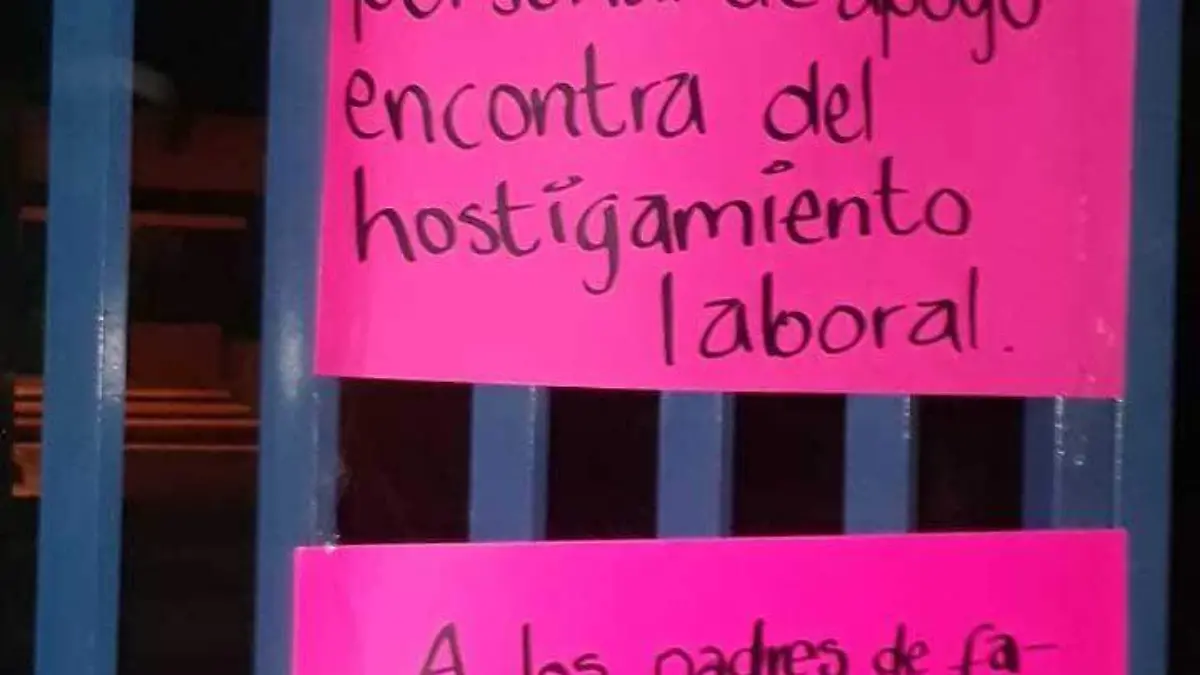 personal de apoyo
encontra del
hostigamiento
laboral.
A los padres de fa-